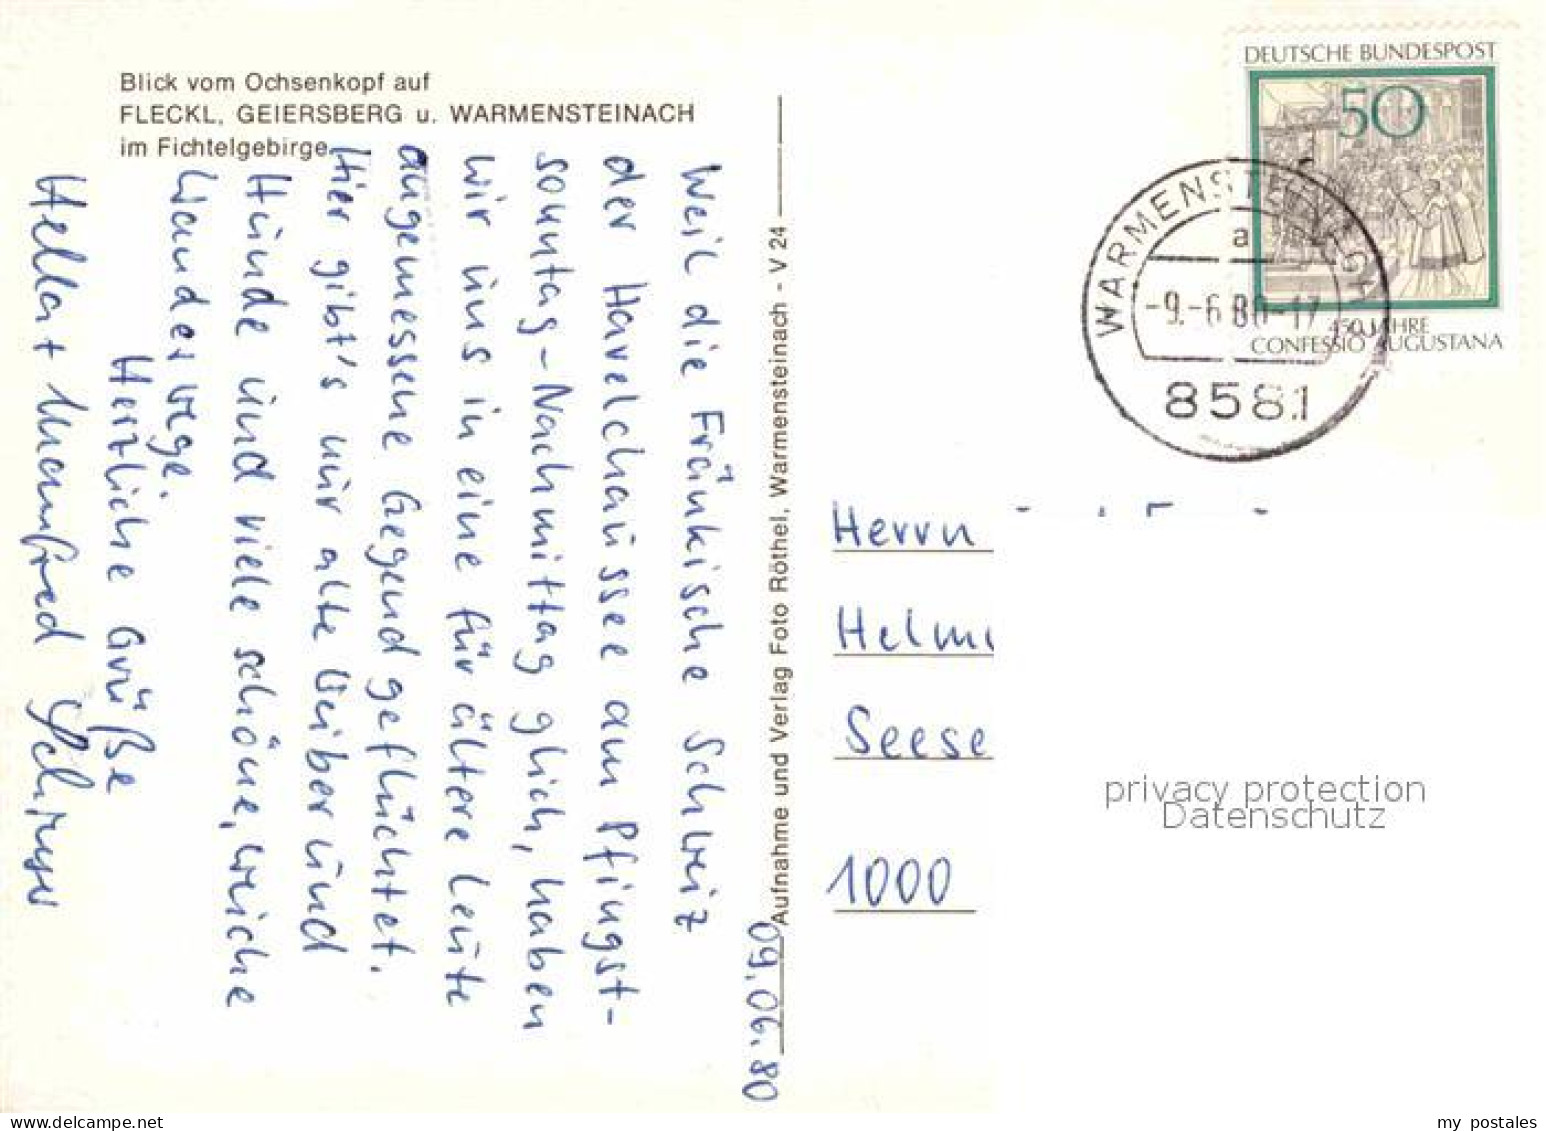 Blick vom Ochsenkopf auf
FLECKL, GEIERSBERG u. WARMENSTEINACH
im Fichtelgebirge
09.06.80
Weil die Fränkische Schweiz
der Havelchaussee am Pfingst-
sonntag-Nachmittag glich, haben
wir uns in eine für ältere Leute
angemessene Gegend geflüchtet.
Hier gibt's nur alte Weiber und
Hunde und viele schöne, weiche
Wanderwege.
Herzliche Grüße
Hella + Manfred
Aufnahme und Verlag Foto Röthel, Warmensteinach - V 24
DEUTSCHE BUNDESPOST
50
450 JAHRE
CONFESSIO AUGUSTANA
WARMENSTEINACH
a
-9.-6.80-17
8581
Herrn
Helm
Seese
1000
privacy protection
Datenschutz
my postales